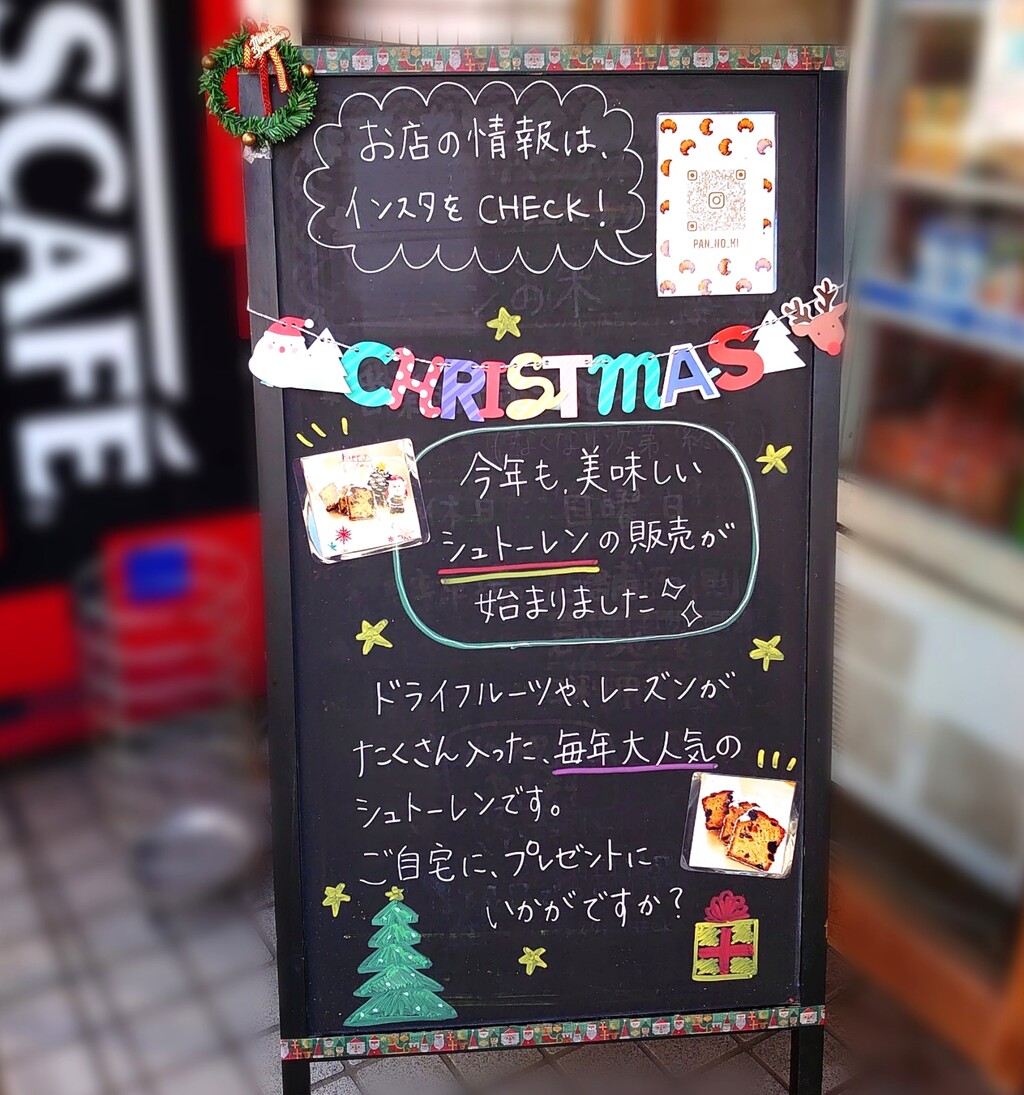 お店の情報は、
インスタを CHECK!
PAN_NO_KI
CHRISTMAS
今年も、美味しい
シュトーレンの販売が
始まりました
ドライフルーツや、レーズンが
たくさん入った、毎年大人気の
シュトーレンです。
ご自宅に、プレゼントに
いかがですか?
SCAFÉ